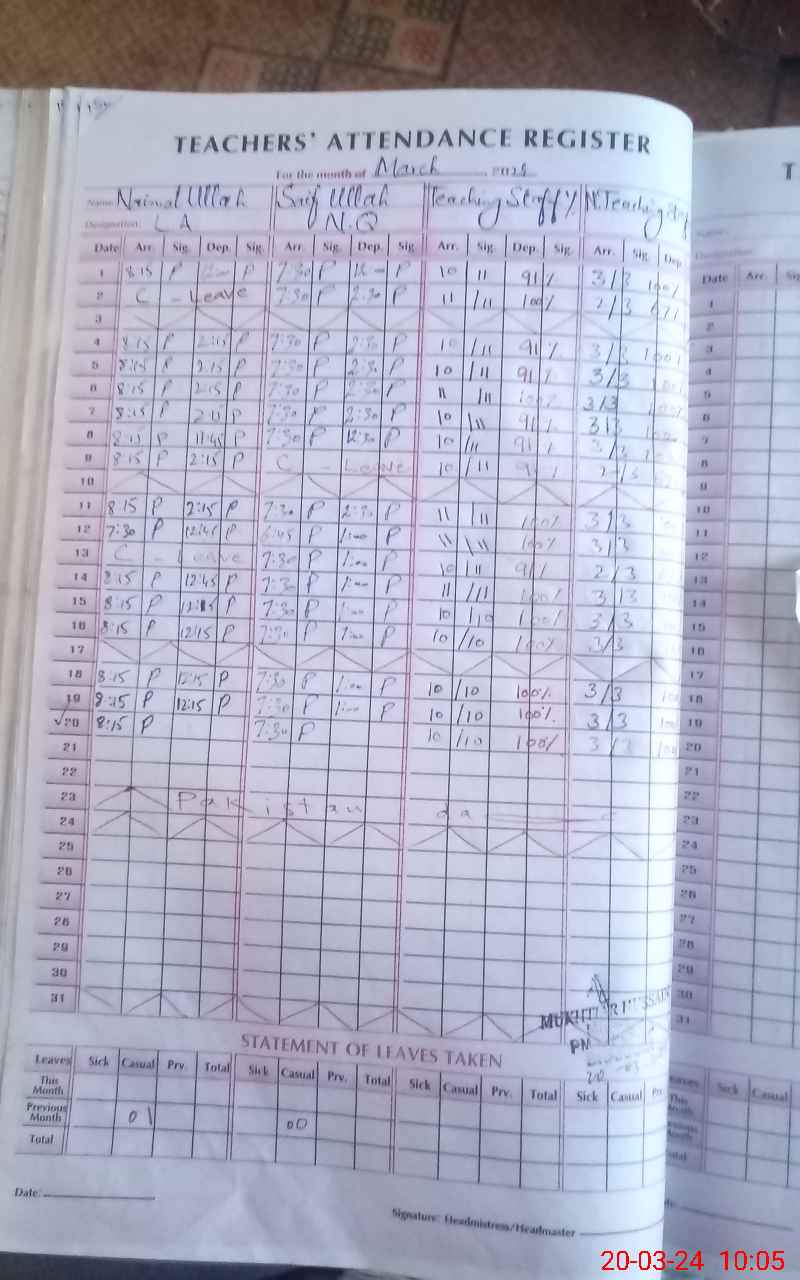 TEACHERS' ATTENDANCE REGISTER
For the month of March 2024
Name: Naimat Ullah Saif Ullah Teaching Staff % N.Teaching
Designation: LA N.Q
Date Arr. Sig. Dep. Sig. Arr. Sig. Dep. Sig Arr. Sig. Dep. Sig. Arr. Sig. Dep.
1 8:15 P P 7:30 P 12:00 P 10 11 91% 3/3 100%
2 C - Leave 7:30 P 2:30 P 11 /11 100% 2/3
3
4 8:15 P 2:15 P 7:30 P 2:30 P 10 /11 91% 3/3 100%
5 8:15 P 2:15 P 7:30 P 2:30 P 10 /11 91% 3/3
6 8:15 P 2:15 P 7:30 P 2:30 P 11 /11 100% 3/3
7 8:15 P 2:15 P 7:30 P 2:30 P 10 /11 91% 3/3
8 8:15 P 11:45 P 7:30 P 12:30 P 10 /11 91% 3/3
9 8:15 P 2:15 P C - Leave 10 /11 91% 2/3
10
11 8:15 P 2:15 P 7:30 P 2:30 P 11 /11 100% 3/3
12 7:30 P 12:45 P 6:45 P 1:00 P 11 /11 100% 3/3
13 C - Leave 7:30 P 1:00 P 10 /11 91% 2/3
14 8:15 P 12:45 P 7:30 P 1:00 P 11 /11 100% 3/3
15 8:15 P 12:15 P 7:30 P 1:00 P 10 /10 100% 3/3
16 8:15 P 12:15 P 7:30 P 1:00 P 10 /10 100% 3/3
17
18 8:15 P 12:15 P 7:30 P 1:00 P 10 /10 100% 3/3
19 8:15 P 12:15 P 7:30 P 1:00 P 10 /10 100% 3/3
√20 8:15 P 7:30 P 10 /10 100% 3/3
21
22
23 Pakistan da
24
25
26
27
28
29
30
31
MUKHTIAR HUSSAIN
STATEMENT OF LEAVES TAKEN
Leaves Sick Casual Prv. Total Sick Casual Prv. Total Sick Casual Prv. Total Sick Casual
This Month
Previous Month 01 00
Total
Date:
Signature: Headmistress/Headmaster
T
Date Arr.
1
2
3
4
5
6
7
8
9
10
11
12
13
14
15
16
17
18
19
20
21
22
23
24
25
26
27
28
29
30
31
Sick Casual
20-03-24 10:05